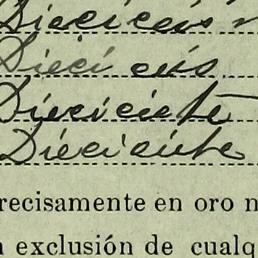 Diecicéis
Dieci
Dieciciete
Dieciciete
recisamente en oro n
exclusión de cualq